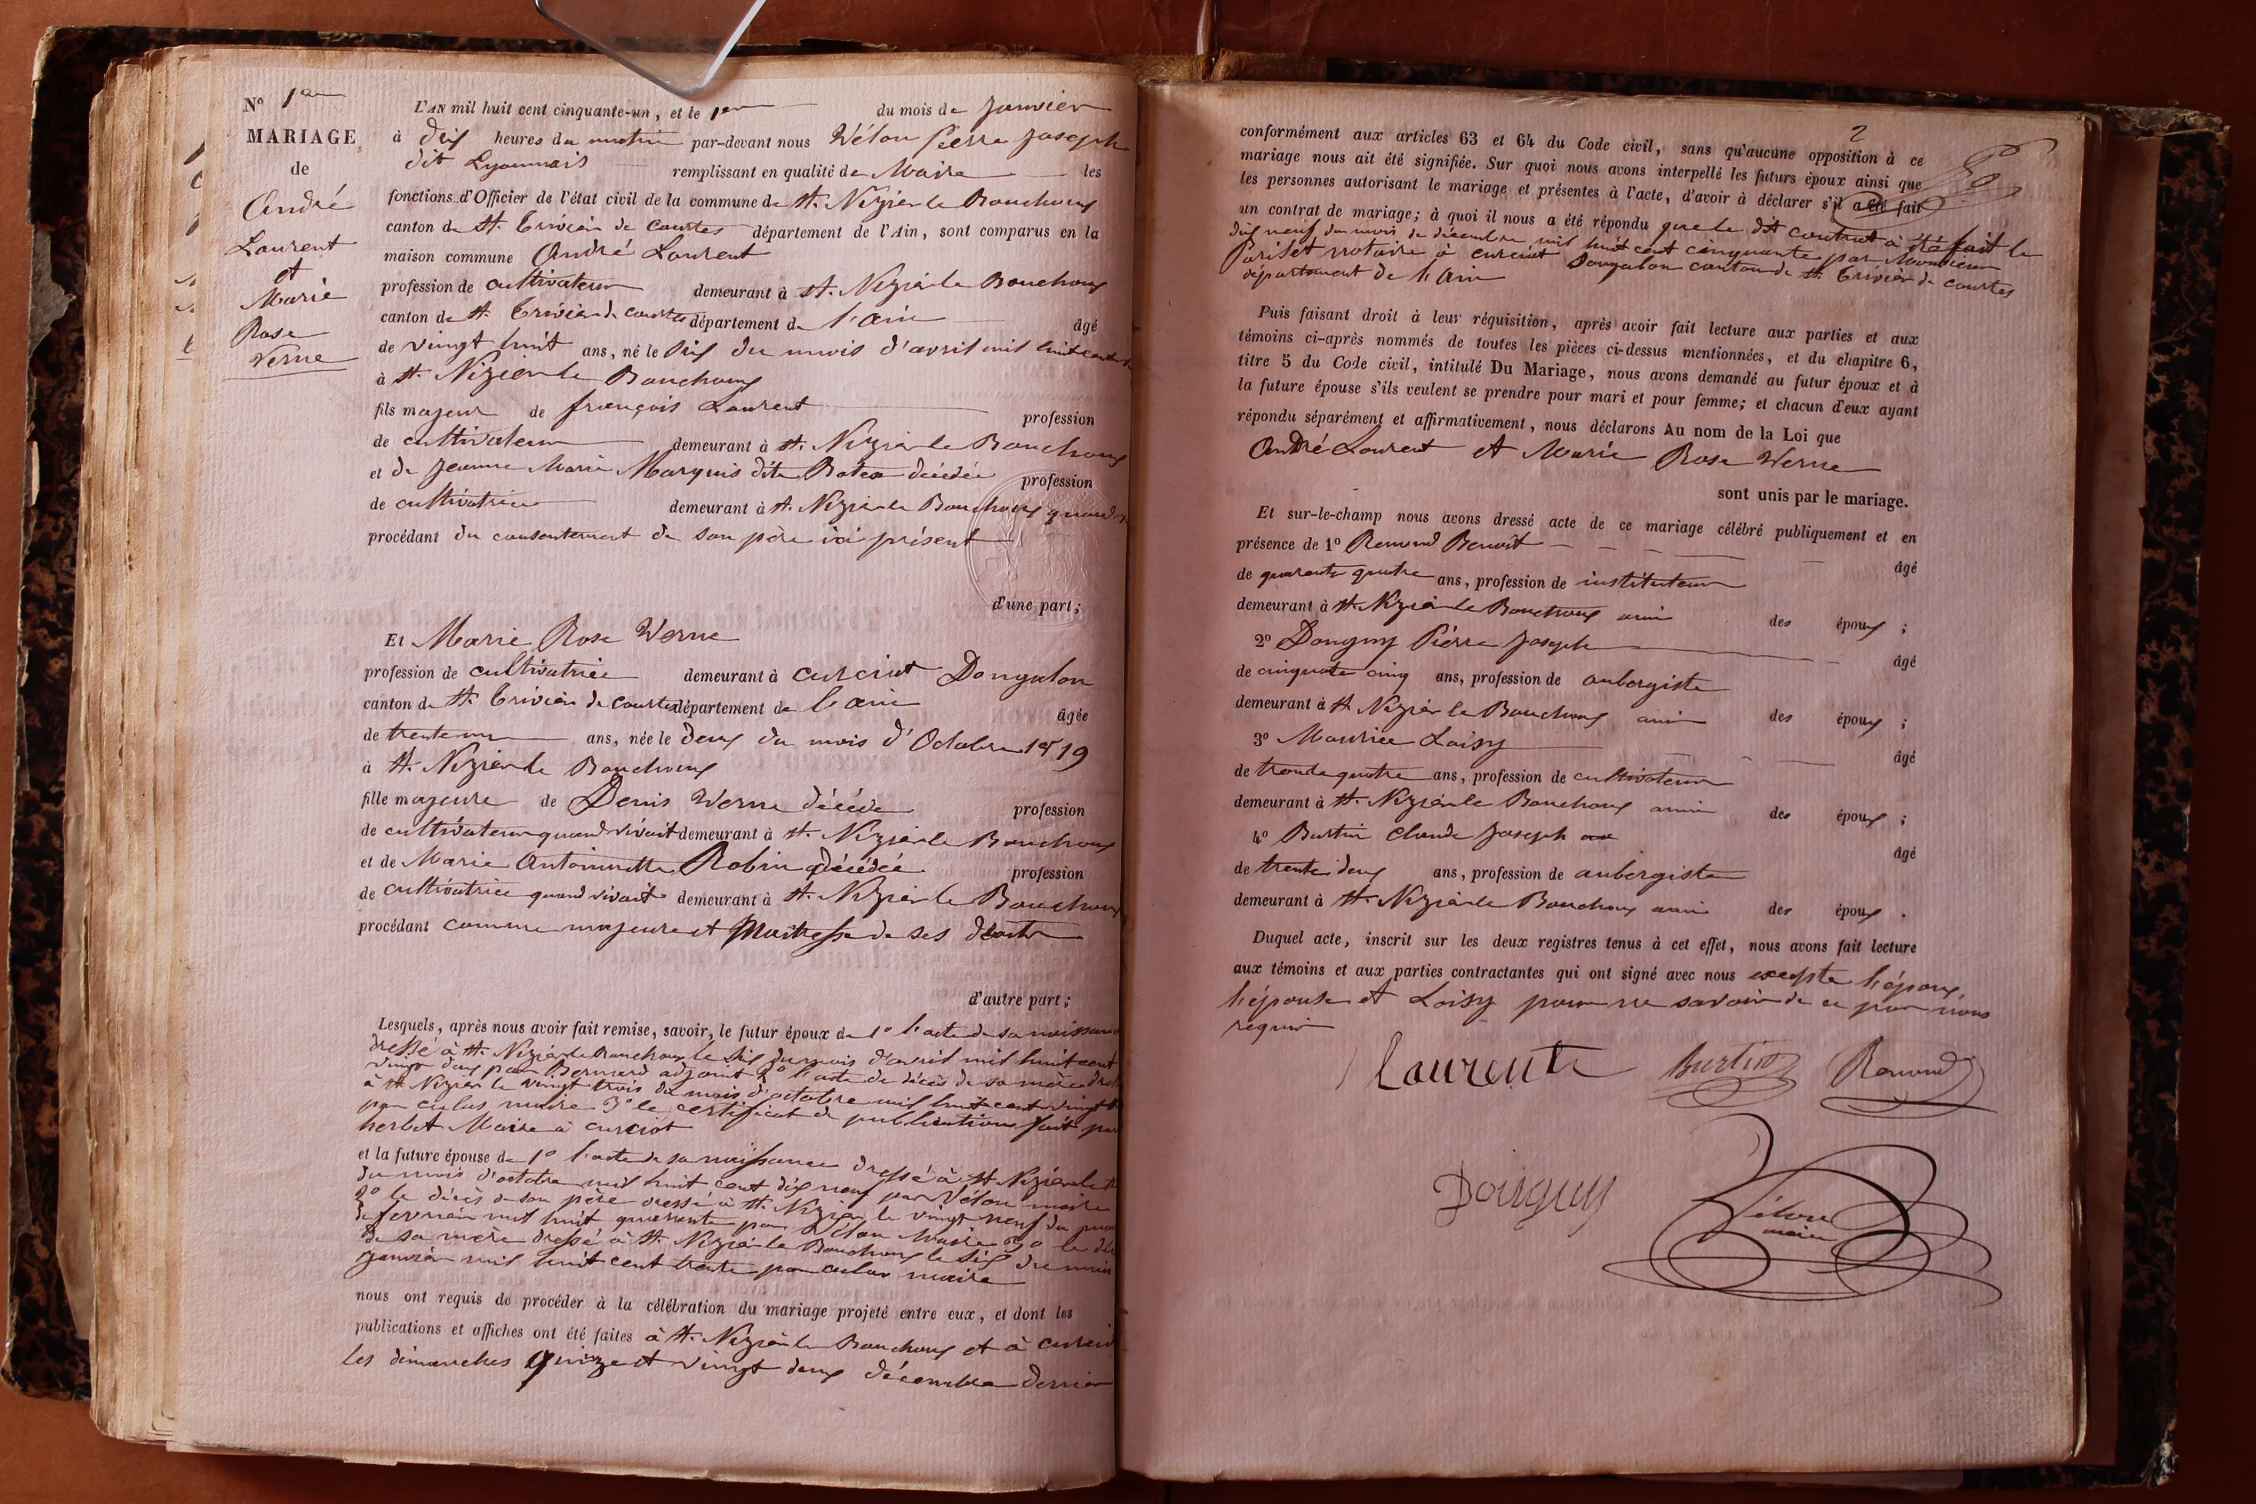 N° 1er
MARIAGE
de
André
Laurent
et
Marie
Rose
Verne
L'AN mil huit cent cinquante-un, et le 1er du mois de Janvier
à dix heures du matin par-devant nous Vélon Pierre Joseph
dit Lyonnais remplissant en qualité de Maire les
fonctions d'Officier de l'état civil de la commune de St. Nizier le Bouchoux
canton de St. Trivier de Courtes département de l'Ain, sont comparus en la
maison commune André Laurent
profession de cultivateur demeurant à St. Nizier le Bouchoux
canton de St. Trivier de Courtes département de l'ain âgé
de vingt huit ans, né le dix du mois d'avril mil huit cent
à St. Nizier le Bouchoux
fils majeur de françois Laurent profession
de cultivateur demeurant à St. Nizier le Bouchoux
et de Jeanne Marie Marquis dite Boteo décédée profession
de cultivatrice demeurant à St. Nizier le Bouchoux quand
procédant du consentement de son père ici présent
d'une part;
Et Marie Rose Verne
profession de cultivatrice demeurant à curciat Dongalon
canton de St. Trivier de Courtes département de l'ain âgée
de trente un ans, née le deux du mois d'Octobre 1819
à St. Nizier le Bouchoux
fille majeure de Denis Verne décédé profession
de cultivateur quand vivait demeurant à St. Nizier le Bouchoux
et de Marie Antoinette Robin décédée profession
de cultivatrice quand vivait demeurant à St. Nizier le Bouchoux
procédant comme majeure et Maitresse de ses droits
d'autre part;
Lesquels, après nous avoir fait remise, savoir, le futur époux de 1° l'acte de sa naissance
dressé à St. Nizier le Bouchoux le dix du mois d'avril mil huit cent
vingt deux par Bernard adjoint 2° l'acte de décès de sa mère
à St Nizier le vingt trois du mois d'octobre mil huit cent vingt
par culas maire 3° le certificat de publication fait par
herbet Maire à curciat
et la future épouse de 1° l'acte de sa naissance dressé à St Nizier le
du mois d'octobre mil huit cent dix neuf par Vélon maire
2° le décès de son père dressé à St. Nizier le vingt neuf du mois
de fevrier mil huit quarante par Vélon Maire 3° le
de sa mère dressé à St. Nizier le Bouchoux le dix du mois
janvier mil huit cent trente par culas maire
nous ont requis de procéder à la célébration du mariage projeté entre eux, et dont les
publications et affiches ont été faites à St. Nizier le Bouchoux et à curciat
les dimanches quinze et vingt deux décembre dernier
2
conformément aux articles 63 et 64 du Code civil, sans qu'aucune opposition à ce
mariage nous ait été signifiée. Sur quoi nous avons interpellé les futurs époux ainsi que
les personnes autorisant le mariage et présentes à l'acte, d'avoir à déclarer s'il a été fait
un contrat de mariage; à quoi il nous a été répondu que le dit contrat a été fait le
dix neuf du mois de décembre mil huit cent cinquante par Monsieur
Pariset notaire à curciat Dongalon canton de St Trivier de courtes
département de l'Ain
Puis faisant droit à leur réquisition, après avoir fait lecture aux parties et aux
témoins ci-après nommés de toutes les pièces ci-dessus mentionnées, et du chapitre 6,
titre 5 du Code civil, intitulé Du Mariage, nous avons demandé au futur époux et à
la future épouse s'ils veulent se prendre pour mari et pour femme; et chacun d'eux ayant
répondu séparément et affirmativement, nous déclarons Au nom de la Loi que
André Laurent et Marie Rose Verne
sont unis par le mariage.
Et sur-le-champ nous avons dressé acte de ce mariage célébré publiquement et en
présence de 1° Remond Benoit âgé
de quarante quatre ans, profession de instituteur
demeurant à St. Nizier le Bouchoux ami des époux;
2° Donguy Pierre Joseph âgé
de cinquante cinq ans, profession de aubergiste
demeurant à St Nizier le Bouchoux ami des époux;
3° Maurice Loisy âgé
de trente quatre ans, profession de cultivateur
demeurant à St. Nizier le Bouchoux ami des époux;
4° Burtin Claude Joseph âgé
de trente deux ans, profession de aubergiste
demeurant à St. Nizier le Bouchoux ami des époux.
Duquel acte, inscrit sur les deux registres tenus à cet effet, nous avons fait lecture
aux témoins et aux parties contractantes qui ont signé avec nous excepte l'époux,
l'épouse et Loisy pour ne savoir de ce par nous
requis
Laurent Burtin Remond
Donguy Vélon
maire